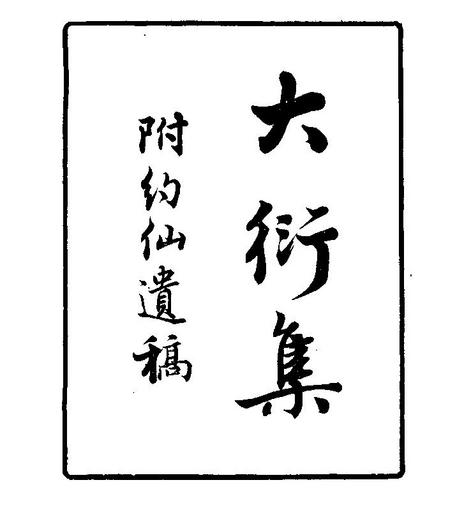 大衍集
附約仙遺稿